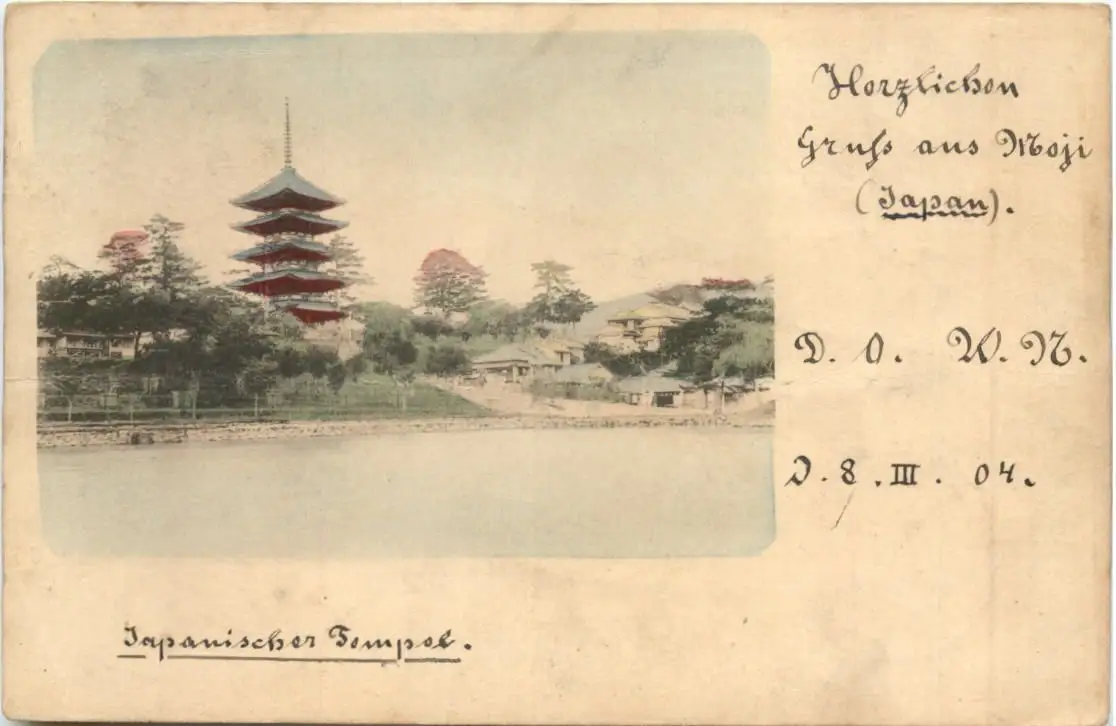 Herzlichen
Gruß aus Moji
(Japan).
D. O. W. N.
D. 8. III. 04.
Japanischer Tempel.